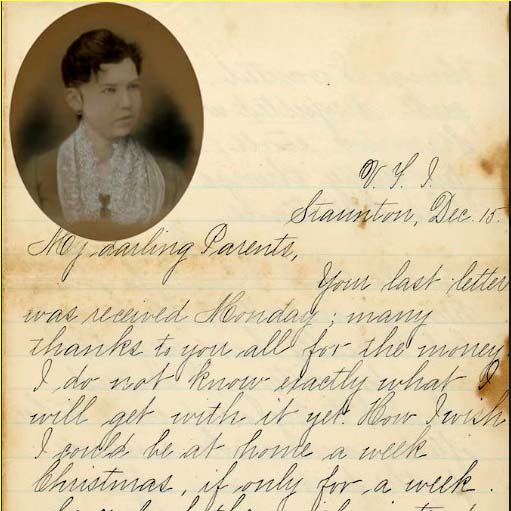 V. F. I.
Staunton, Dec. 15.
My darling Parents,
Your last letter
was received Monday; many
thanks to you all for the money.
I do not know exactly what I
will get with it yet. How I wish
I could be at home a week
Christmas, if only for a week.